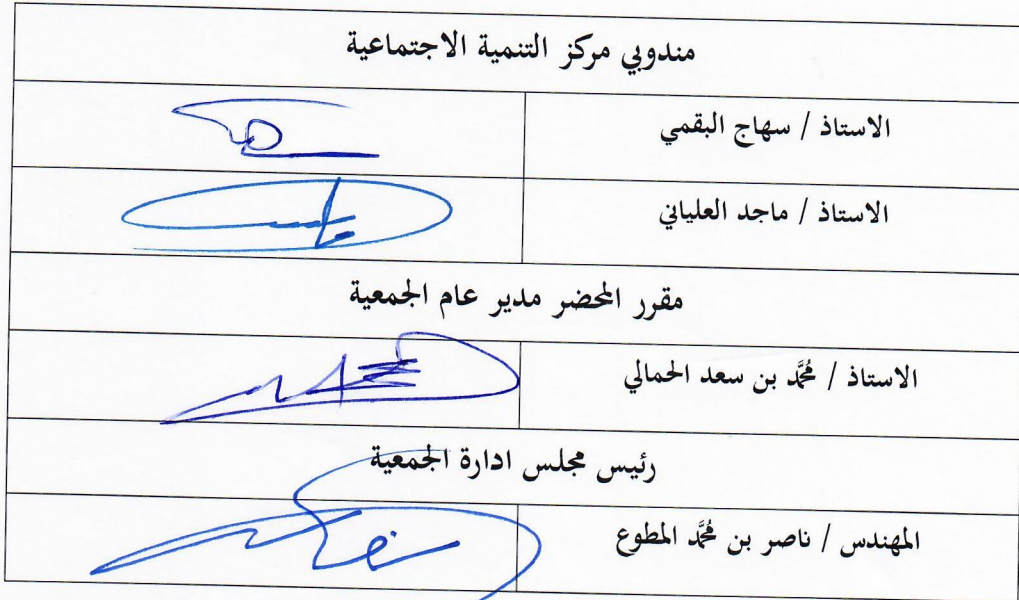 مندوبي مركز التنمية الاجتماعية
الاستاذ / سهاج البقمي
الاستاذ / ماجد العلياني
مقرر المحضر مدير عام الجمعية
الاستاذ / محمد بن سعد الحمالي
رئيس مجلس ادارة الجمعية
المهندس / ناصر بن محمد المطوع